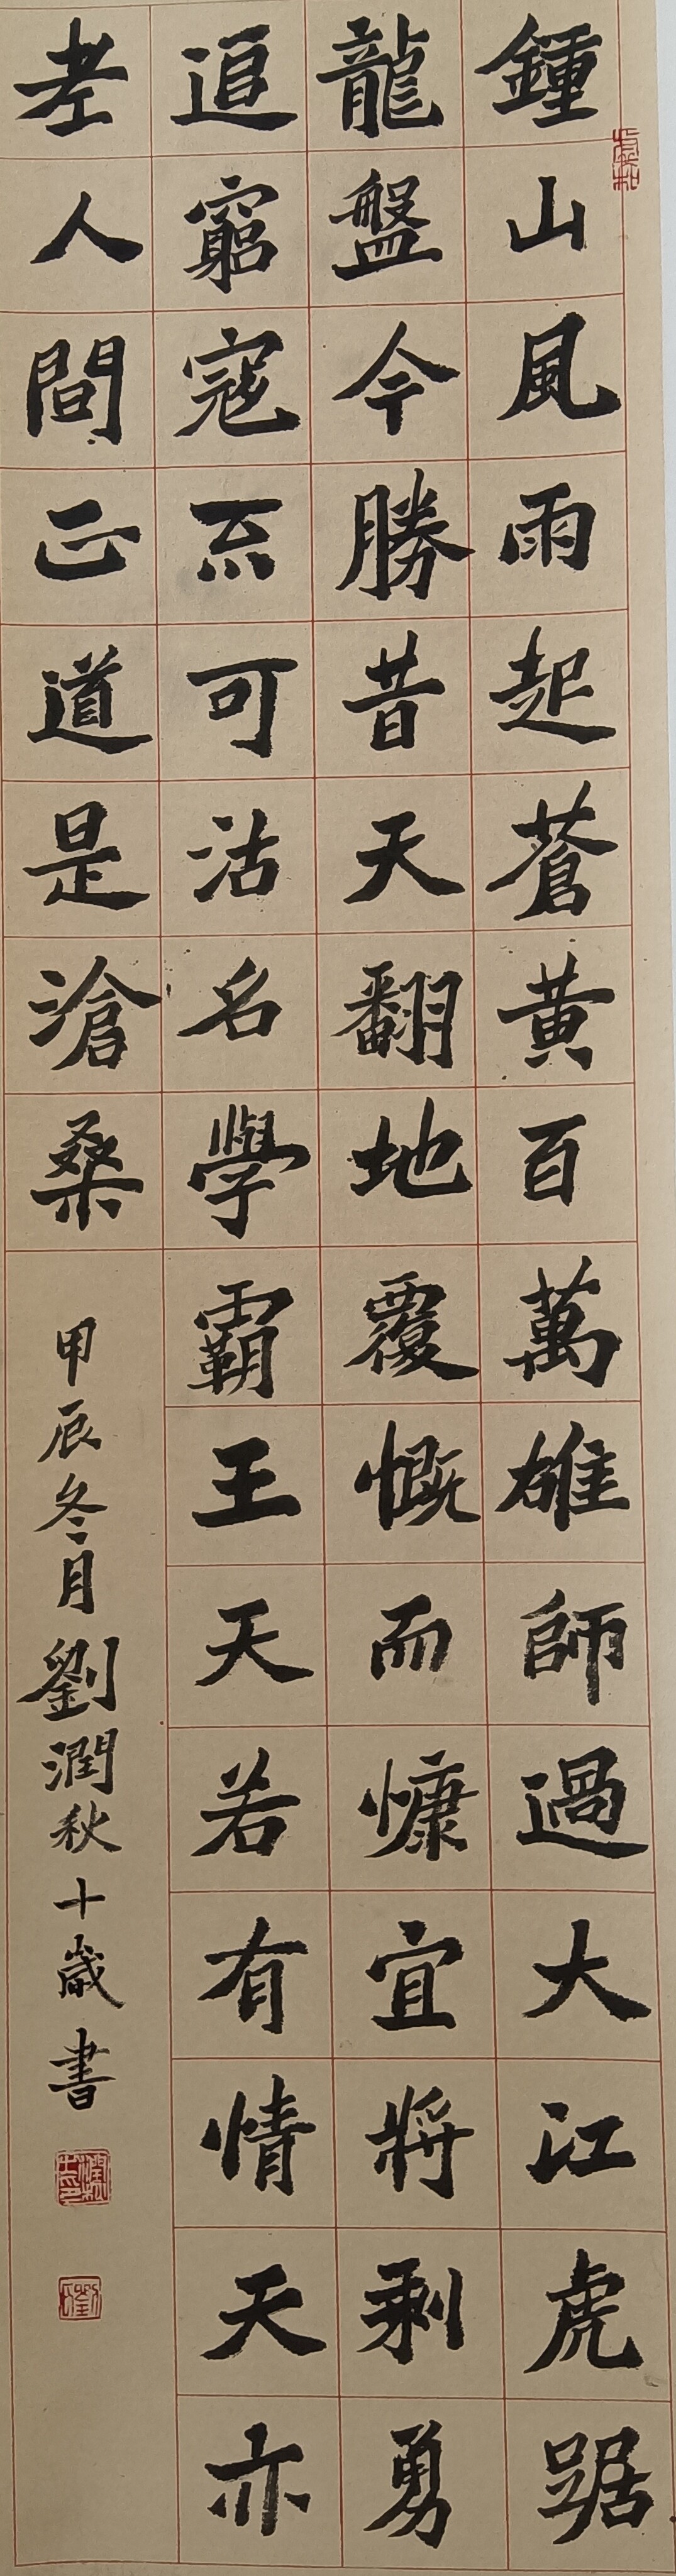 鍾山風雨起蒼黃百萬雄師過大江虎踞
龍盤今勝昔天翻地覆慨而慷宜將剩勇
追窮寇不可沽名學霸王天若有情天亦
老人間正道是滄桑
甲辰冬月劉潤秋十歲書